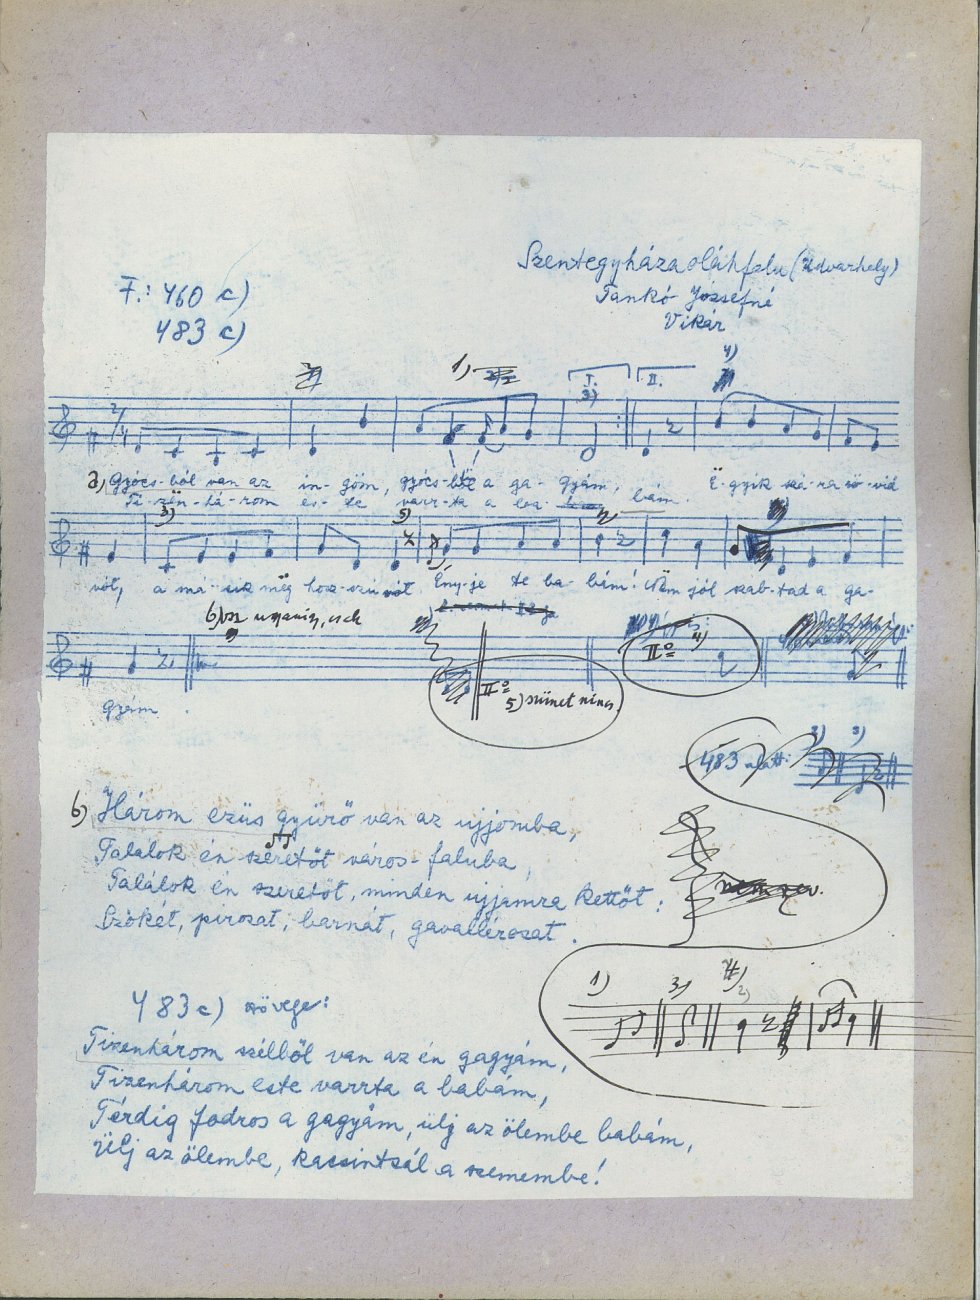 Szentegyházasoláhfalu (Udvarhely)
Tankó Józsefné
Vikár
F.: 460 c)
483 c)
1)
I. II. 4)
3)
2/4
a) Gyócs-ból van az in-göm, gyócs-ból a ga-gyám, Ë-gyik szá-ra rö-vid
Ti-zën-há-rom es-te varr-ta a ba- bám.
3) 5)
vót, a má-sik még hosz-szu vót. Ëny-je te ba-bám! Nëm jól szab-tad a ga-
6)
gyám
IIº 4)
IIº
5) szünet nincs.
483 alatt: 2) 3)
b) Három ezüs gyürö van az ujjomba,
Talalok én szeretöt város-faluba,
Találok én szeretöt, minden ujjamra kettöt:
Szökét, pirosat, barnát, gavallérosat.
1) 3) 2)
483 c) szövege:
Tizenhárom széllöl van az én gagyám,
Tizenhárom este varrta a babám,
Térdig fodros a gagyám, ülj az ölembe babám,
Ülj az ölembe, kacsintsál a szemembe!